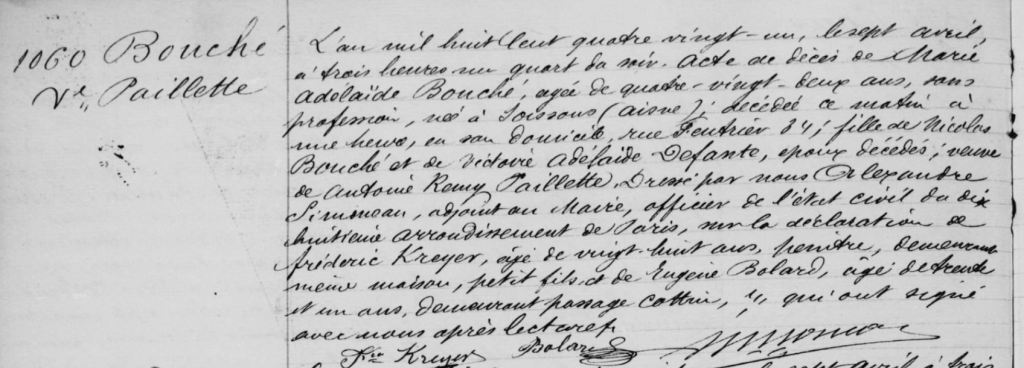 1060 Bouché
Ve Paillette
L'an mil huit cent quatre vingt-un, le sept avril,
à trois heures un quart du soir. Acte de décès de Marie
Adelaïde Bouché, agée de quatre-vingt-deux ans, sans
profession, née à Soissons (aisne); décédée ce matin à
une heure, en son domicile, rue Feutrier 34; fille de Nicolas
Bouché et de Victoire Adélaïde Defante, epoux décédés; veuve
de Antoine Remy Paillette. Dressé par nous Alexandre
Simoneau, adjoint au Maire, officier de l'état civil du dix
huitième arrondissement de Paris, sur la déclaration de
frédéric Kreyer, âgé de vingt-huit ans, peintre, demeurant
même maison, petit fils et de Eugène Bolard, âgé de trente
et un ans, demeurant passage cottin, 4, qui ont signé
avec nous après lecture
Fic Kreyer Bolard
sept avril à trois